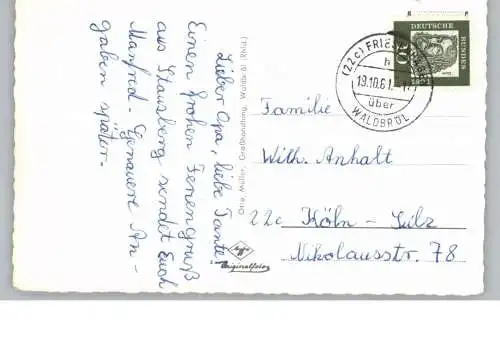 Lieber Opa, liebe Tante!
Einen frohen Feriengruß
aus Stausberg sendet Euch
Manfred. Genauere An-
gaben später.
Otto Müller, Großhandlung, Waldbröl (Rhld.)
Agfa
Originalfoto
Familie
Wilh. Anhalt
22c Köln-Sülz
Nikolausstr. 78
(22c) FRIESEN
h
19.10.61.-17
über
WALDBRÖL
DEUTSCHE
BUNDES